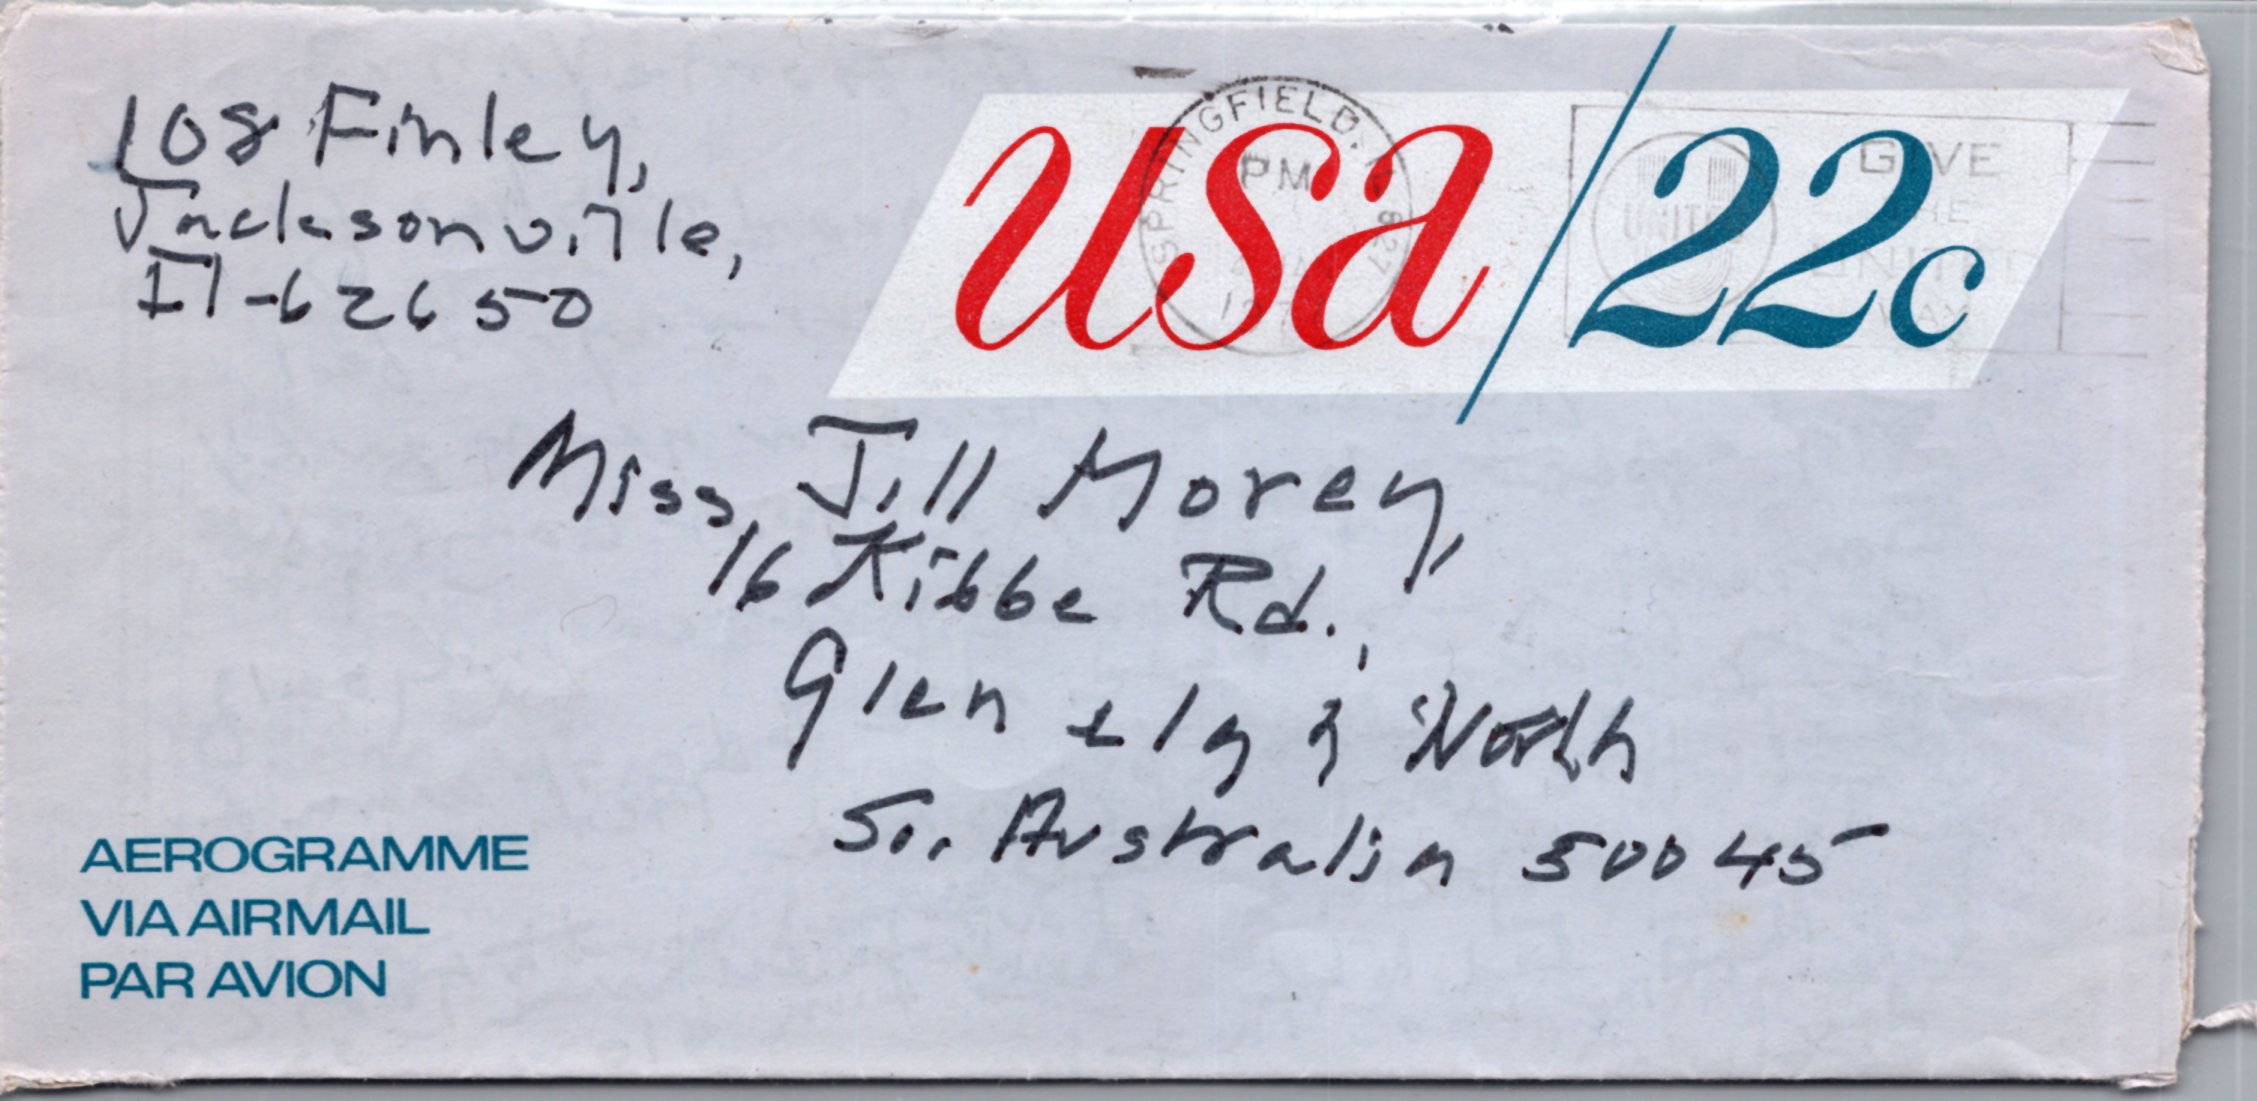 108 Finley,
Jacksonville,
Il-62650
usa/22c
SPRINGFIELD, IL 627
PM
GIVE
THE
UNITED
WAY
Miss Jill Morey,
16 Kibbe Rd.,
Glen elg n North
So. Australia 50045
AEROGRAMME
VIA AIRMAIL
PAR AVION